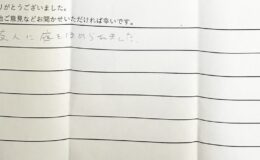 りがとうございました。
他ご意見などお聞かせいただければ幸いです。
友人に庭をほめられました。